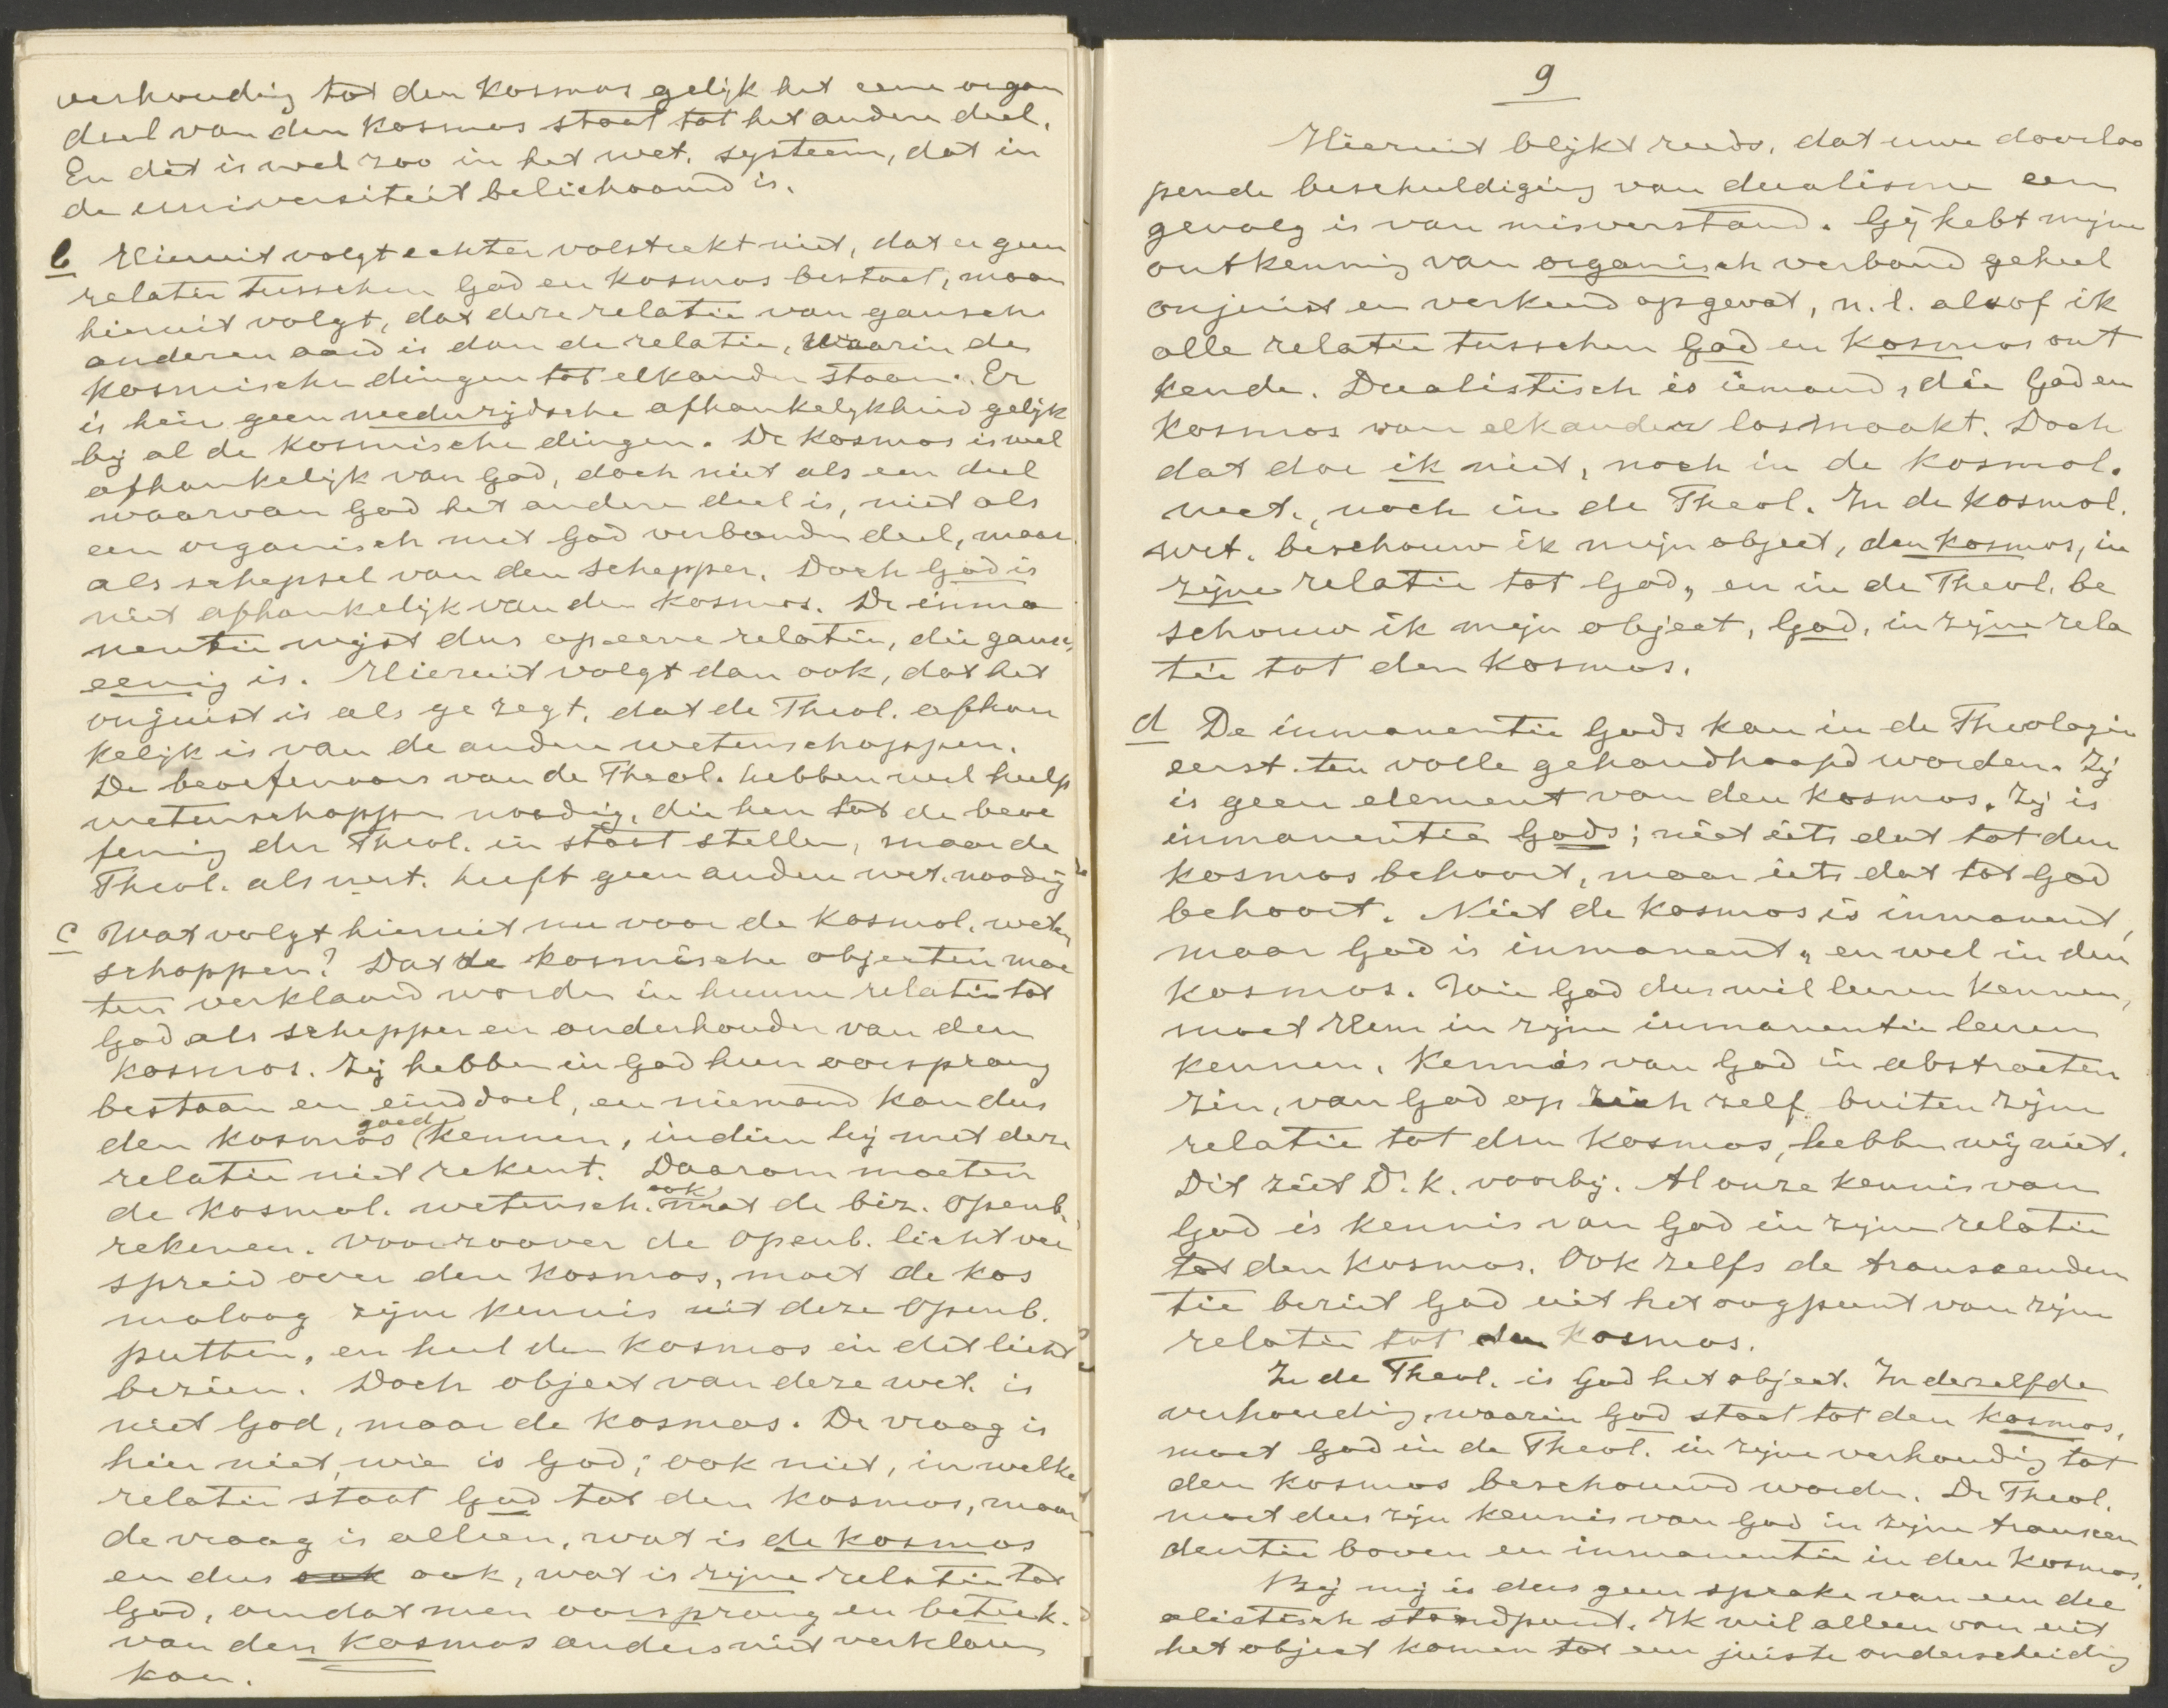 verhouding tot den kosmos gelijk het eene organ
deel van den kosmos staat tot het andere deel.
En dát is wel zoo in het wet. systeem, dat in
de universiteit belichaamd is.
b Hieruit volgt echter volstrekt niet, dat er geen
relatie tusschen God en kosmos bestaat, maar
hieruit volgt, dat deze relatie van gansch
anderen aard is dan de relatie, waarin de
kosmische dingen tot elkander staan. Er
is hier geen wederzijdsche afhankelijkheid gelijk
bij al de kosmische dingen. De kosmos is wel
afhankelijk van God, doch niet als een deel
waarvan God het andere deel is, niet als
een organisch met God verbonden deel, maar
als schepsel van den Schepper. Doch God is
niet afhankelijk van den kosmos. De inma
nentie wijst dus op eene relatie, die gansch
eenig is. Hieruit volgt dan ook, dat het
onjuist is als ge zegt, dat de Theol. afhan
kelijk is van de andere wetenschappen.
De beoefenaars van de Theol. hebben wel hulp
wetenschappen noodig, die hen tot de beoe
fening der Theol. in staat stellen, maar de
Theol. als wet. heeft geen andere wet. noodig
c Wat volgt hieruit nu voor de kosmol. weten
schappen? Dat de kosmische objecten moe
ten verklaard worden in hunne relatie tot
God als schepper en onderhouder van den
kosmos. Zij hebben in God hun oorsprong
bestaan en einddoel, en niemand kan dus
den kosmos goed kennen, indien hij met deze
relatie niet rekent. Daarom moeten
de kosmol. wetensch. ook met de biz. Openb.
rekenen. Voorzoover de Openb. licht ver
spreid over den kosmos, moet de kos
moloog zijne kennis uit deze Openb.
putten, en heel den kosmos in dit licht
bezien. Doch object van deze wet. is
niet God, maar de kosmos. De vraag is
hier niet, wie is God; ook niet, in welke
relatie staat God tot den kosmos, maar
de vraag is alleen, wat is de kosmos
en dus ook ook, wat is zijne relatie tot
God, omdat men oorsprong en beteek.
van den kosmos anders niet verklaren
kan.
9
Hieruit blijkt reeds, dat uwe doorloo
pende beschuldiging van dualisme een
gevolg is van misverstand. Gij hebt mijne
ontkenning van organisch verband geheel
onjuist en verkeerd opgevat, n.l. alsof ik
alle relatie tusschen God en kosmos ont
kende. Dualistisch is iemand, die God en
kosmos van elkander losmaakt. Doch
dat doe ik niet, noch in de kosmol.
wet., noch in de Theol. In de kosmol.
wet. beschouw ik mijn object, den kosmos, in
zijne relatie tot God, en in de Theol. be
schouw ik mijn object, God, in zijne rela
tie tot den kosmos.
d De inmanentie Gods kan in de Theologie
eerst ten volle gehandhaafd worden. Zij
is geen element van den kosmos. Zij is
inmanentie Gods; niet iets dat tot den
kosmos behoort, maar iets dat tot God
behoort. Niet de kosmos is inmanent,
maar God is inmanent, en wel in den
kosmos. Wie God dus wil leeren kennen,
moet Hem in zijne inmanentie leeren
kennen. Kennis van God in abstracten
zin, van God op zich zelf buiten zijne
relatie tot den kosmos, hebben wij niet.
Dit ziet Dr. K. voorbij. Al onze kennis van
God is kennis van God in zijne relatie
tot den kosmos. Ook zelfs de transcenden
tie beziet God uit het oogpunt van zijne
relatie tot den kosmos.
In de Theol. is God het object. In dezelfde
verhouding, waarin God staat tot den kosmos,
moet God in de Theol. in zijne verhouding tot
den kosmos beschouwd worden. De Theol.
moet dus zijn kennis van God in zijne transcen
dentie boven en inmanentie in den kosmos.
Bij mij is dus geen sprake van een du
alistisch standpunt. Ik wil alleen van uit
het object komen tot een juiste onderscheiding